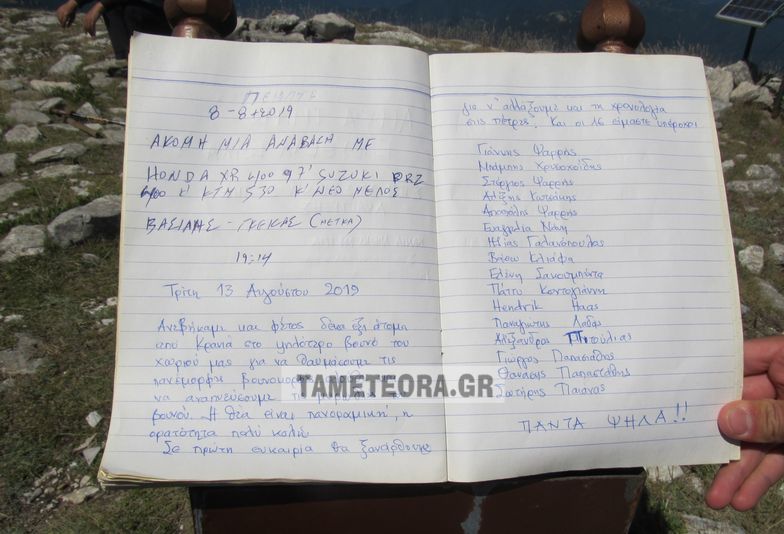 ΠΕΜΠΤΗ
8-8-2019
ΑΚΟΜΗ ΜΙΑ ΑΝΑΒΑΣΗ ΜΕ
HONDA XR 400 97' SUZUKI DRZ
400 Κ' ΚΤΜ 530 Κ' ΝΕΟ ΜΕΛΟΣ
ΒΑΣΙΛΗΣ - ΓΚΕΚΑΣ (ΜΕΤΚΑ)
19:14
Τρίτη 13 Αυγούστου 2019
Ανεβήκαμε και φέτος δέκα έξι άτομα
από Κρανιά στο ψηλότερο βουνό του
χωριού μας για να θαυμάσουμε τις
πανέμορφες
να αναπνεύσουμε
βουνού. Η θέα είναι πανοραμική, η
ορατότητα πολύ καλή.
Σε πρώτη ευκαιρία θα ξανάρθουμε
για ν' αλλάξουμε και τη χρονολογία
στις πέτρες. Και οι 16 είμαστε υπέροχοι
Γιάννης Ψαρρής
Μπάμπης Χρυσοχοΐδης
Στέργιος Ψαρρής
Αλέξης Κωτσάκης
Αποστόλης Ψαρρής
Ευαγγελία Νάνη
Ηλίας Γαλανόπουλος
Βάσω Κλιάφα
Ελένη
Πάττυ Κοντογιάννη
Hendrik Haas
Παναγιώτης Λαδάς
Αλέξανδρος Πιτούλιας
Γιώργος Παπασταθης
Θανάσης Παπαστάθης
Σωτήρης Παιανας
ΠΑΝΤΑ ΨΗΛΑ!!
TAMETEORA.GR